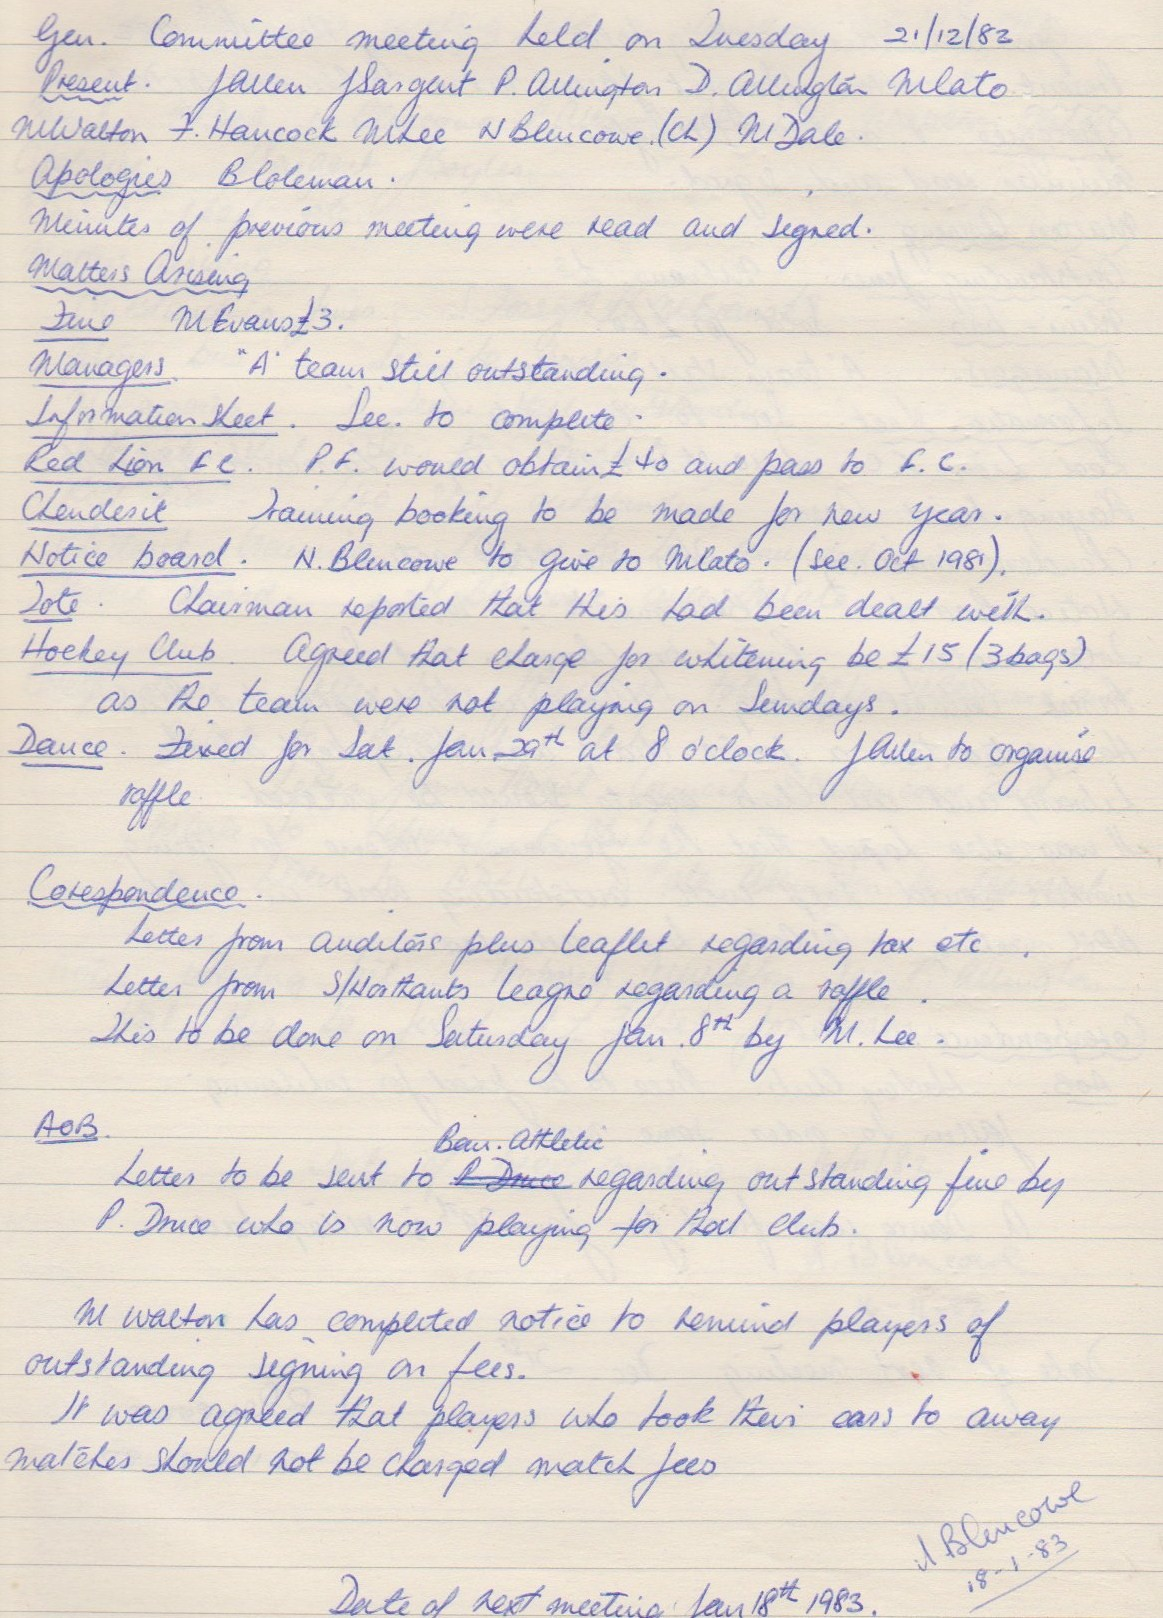 Gen. Committee meeting held on Tuesday 21/12/82
Present. J Allen J Sargent P. Allington D. Allington M Cato
M Walton F. Hancock M Lee N Blencowe (Ch) M Dale.
Apologies B Coleman.
Minutes of previous meeting were read and signed.
Matters Arising
Fine M Evans £3.
Managers "A" team still outstanding.
Information Sheet. Sec. to complete.
Red Lion F.C. P.F. would obtain £40 and pass to F.C.
Chenderit Training booking to be made for new year.
Notice board. N. Blencowe to give to M Cato. (See. Oct 1981).
Tote. Chairman reported that this had been dealt with.
Hockey Club Agreed that charge for whitening be £15 (3 bags)
as the team were not playing on Sundays.
Dance. Fixed for Sat. Jan 29th at 8 o'clock. J Allen to organise
raffle.
Corespondence.
Letter from auditors plus leaflet regarding tax etc.
Letter from S/Northants League regarding a raffle.
This to be done on Saturday Jan. 8th by M. Lee.
AOB.
Ban. Athletic
Letter to be sent to P Druce regarding outstanding fine by
P. Druce who is now playing for that club.
M Walton has completed notice to remind players of
outstanding signing on fees.
It was agreed that players who took their cars to away
matches should not be charged match fees
N Blencowe
18-1-83
Date of next meeting Jan 18th 1983.